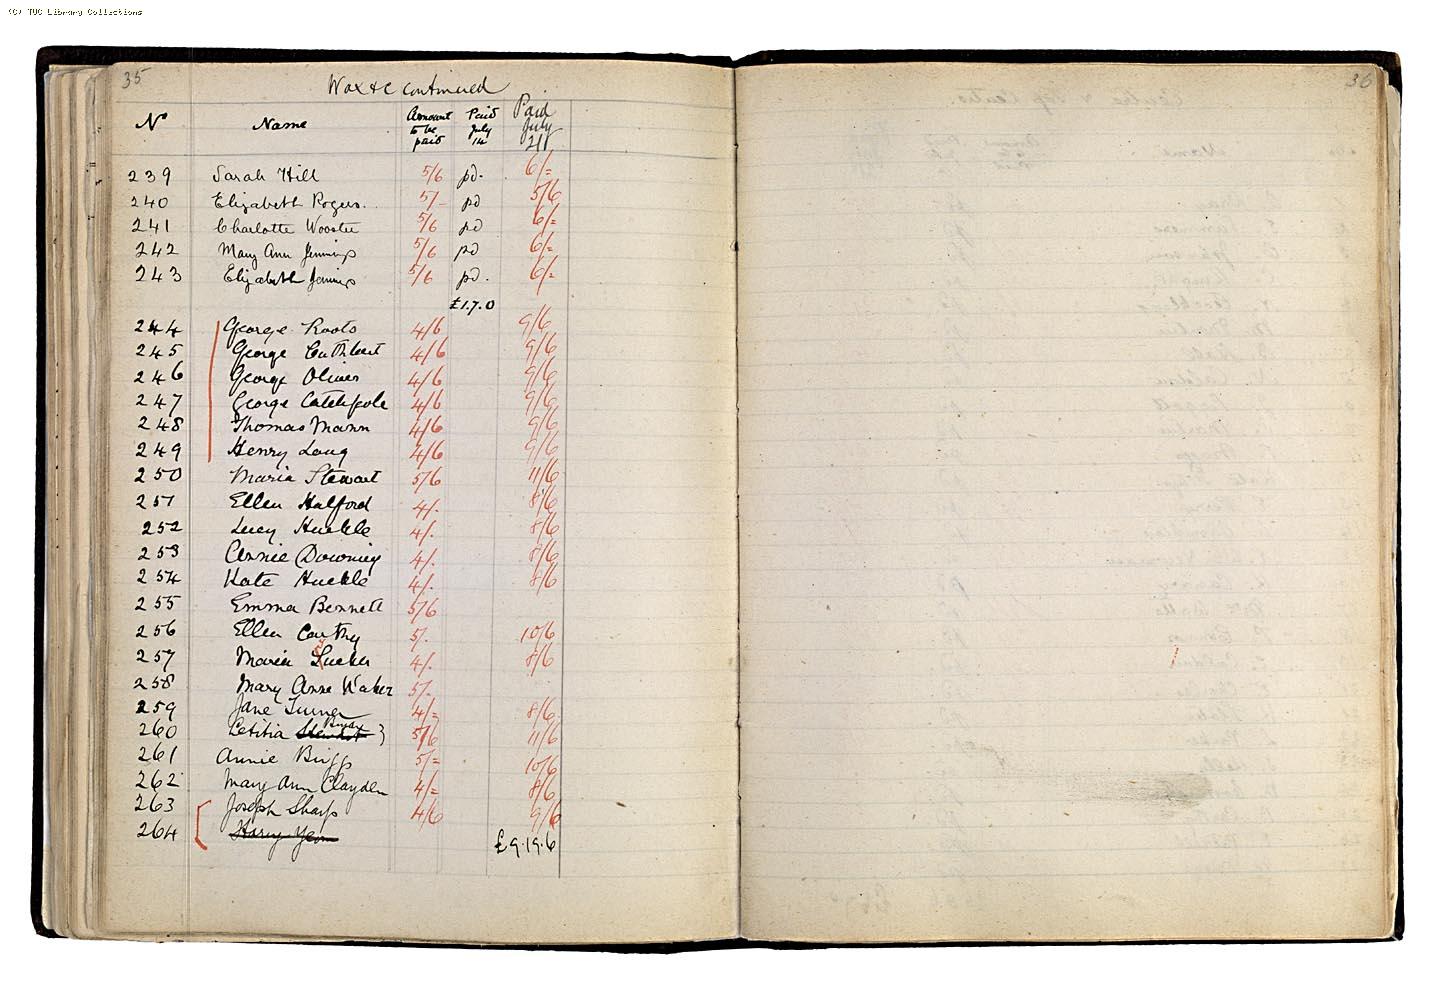 (C) TUC Library Collections
35
Wax &c continued
No Name Amount to be paid Paid July 14 Paid July 21
239 Sarah Hill 5/6 pd. 6/=
240 Elizabeth Rogers. 5/- pd 5/6
241 Charlotte Wooster 5/6 pd 6/=
242 Mary Ann Jennings 5/6 pd 6/=
243 Elizabeth Jennings 5/6 pd. 6/=
£1.7.0
244 George Roots 4/6 9/6
245 George Cuthbert 4/6 9/6
246 George Oliver 4/6 9/6
247 George Catchpole 4/6 9/6
248 Thomas Mann 4/6 9/6
249 Henry Long 4/6 9/6
250 Maria Stewart 5/6 11/6
251 Ellen Halford 4/. 8/6
252 Lucy Huckle 4/. 8/6
253 Annie Downing 4/. 8/6
254 Kate Huckle 4/. 8/6
255 Emma Bennett 5/6
256 Ellen Carthy 5/. 10/6
257 Maria 4/. 8/6
258 Mary Anne Waker 5/.
259 Jane Turner 4/= 8/6
260 Letitia 5/6 11/6
261 Annie Briggs 5/= 10/6
262 Mary Ann Clayden 4/= 8/6
263 Joseph Sharp 4/6 9/6
264 Harry £9.19.6
36